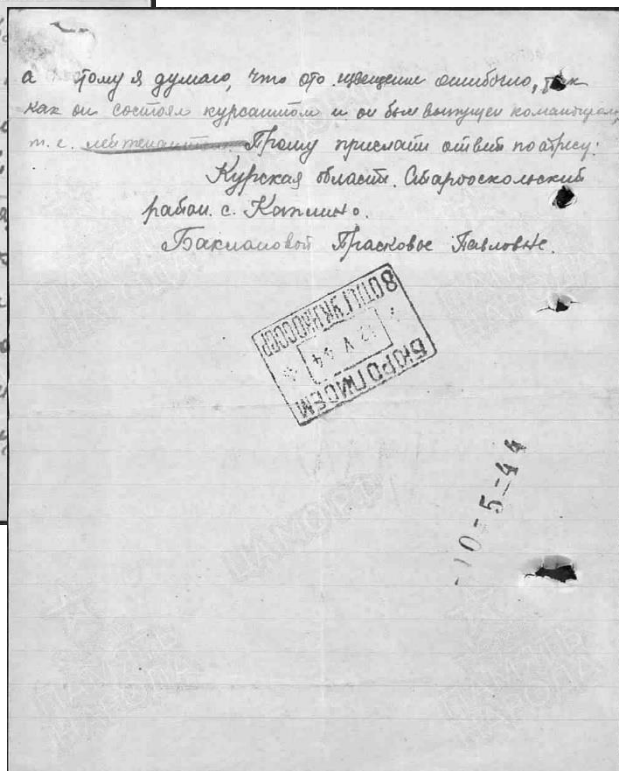 а потому я думаю, что это извещение ошибочно, так
как он состоял курсантом и он был выпущен командиром,
т. е. лейтенантом. Прошу прислать ответ по адресу:
Курская область. Старооскольский
район. с. Каплино.
Баклановой Прасковье Павловне.
БЮРО ПИСЕМ
12 V 44
8 ОТД. ГУК НКО СССР
10-5-44
ПАМЯТЬ
НАРОДА
ЦАМО РФ
ПАМЯТЬ
НАРОДА